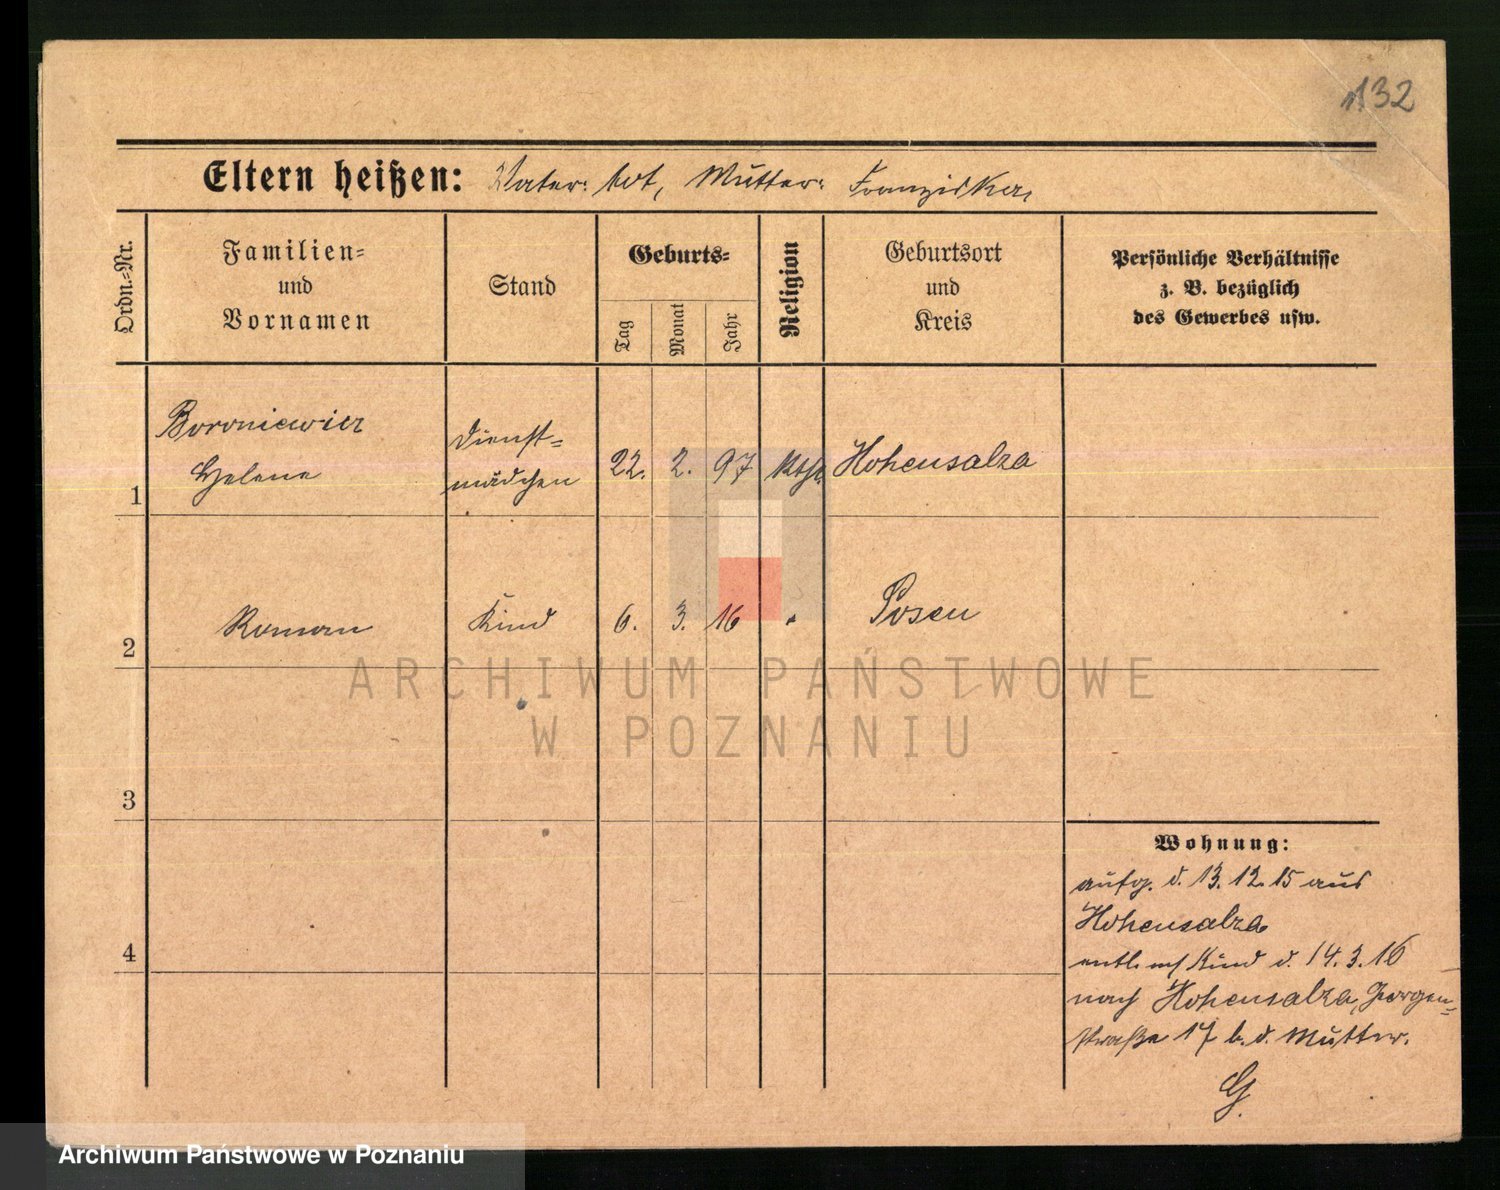 132
Eltern heißen: Vater: tot, Mutter: Franziska,
Ordn.-Nr.
Familien-
und
Vornamen
Stand
Geburts-
Tag
Monat
Jahr
Religion
Geburtsort
und
Kreis
Persönliche Verhältnisse
z. B. bezüglich
des Gewerbes usw.
1
Boroniewicz
Helene
Dienst-
mädchen
22. 2. 97 kth. Hohensalza
2
Roman Kind 6. 3. 16 " Posen
3
4
Wohnung:
aufg. d. 13.12.15 aus
Hohensalza
entl. mit Kind d. 14.3.16
nach Hohensalza, Georgen-
straße 17 b. d. Mutter.
G.
ARCHIWUM PAŃSTWOWE
W POZNANIU
Archiwum Państwowe w Poznaniu